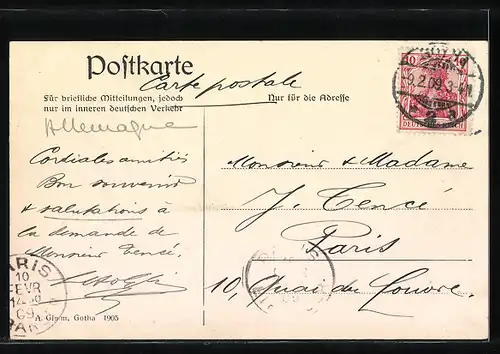 Postkarte
Carte postale
Für briefliche Mitteilungen, jedoch
nur im inneren deutschen Verkehr
Nur für die Adresse
Allemagne
10
9.2.09.3-4N.
DEUTSCHES REICH
Cordiales amitiés
Bon souvenir
& salutations à
la demande de
Monsieur Tencé.
Monsieur & Madame
J. Tencé
Paris
10, Quai du Louvre.
PARIS
10
FEVR
09
A. Glenn, Gotha 1905